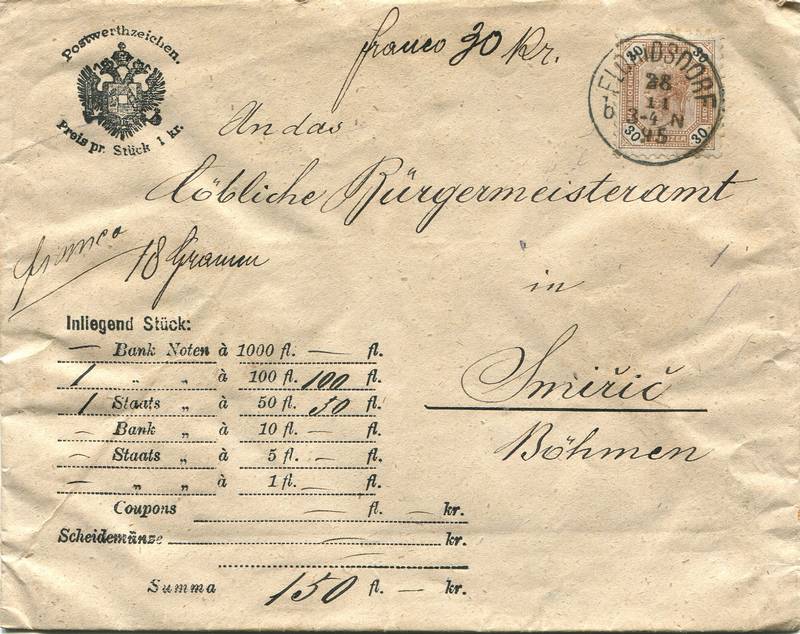 Postwerthzeichen.
Preis pr. Stück 1 kr.
franco 30 Kr.
30 30
30 30
28
11
3-4 N
95
An das
löbliche Bürgermeisteramt
franco
18 Gramm
in
Smiřič
Böhmen
Inliegend Stück:
— Bank Noten à 1000 fl. — fl.
1 „ „ à 100 fl. 100 fl.
1 Staats „ à 50 fl. 50 fl.
— Bank „ à 10 fl. — fl.
— Staats „ à 5 fl. — fl.
— „ „ à 1 fl. — fl.
Coupons — fl. — kr.
Scheidemünze — kr.
Summa 150 fl. — kr.